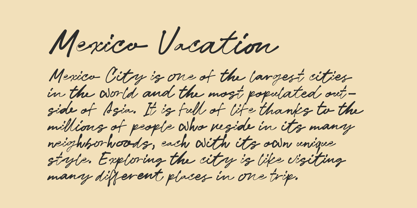 Mexico Vacation
Mexico City is one of the largest cities
in the world and the most populated out-
side of Asia. It is full of life thanks to the
millions of people who reside in its many
neighborhoods, each with its own unique
style. Exploring the city is like visiting
many different places in one trip.